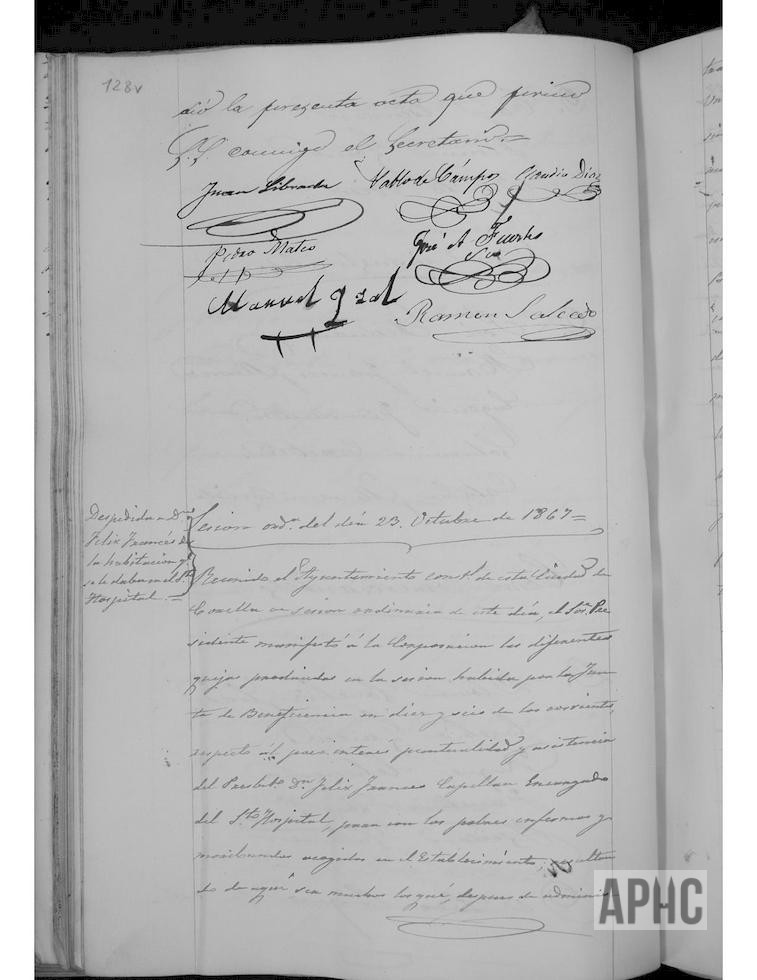 128v
dió la presente acta que firman
S.S. conmigo el Secretario =
Juan Librada Pablo de Campos Claudio Díaz
Pedro Mateo José A Fuertes
Srio
Manuel Gral
Ramon Salcedo
Despedida a Dn
Felix Francés de
la habitacion qe
se le daba en el Sto
Hospital =
Sesion ordª. del dia 23. Octubre de 1867=
Reunido el Ayuntamiento constl. de esta Ciudad de
Corella en sesion ordinaria de este dia, el Sor. Pre
sidente manifestó á la Corporacion las diferentes
quejas producidas en la sesion habida por la Jun
ta de Beneficencia en diez y seis de los corrientes,
respecto al poco interés puntualidad y asistencia
del Presbito. Dn Felix Frances Capellan Encargado
del Sto Hospital, para con los pobres enfermos y
moribundos acogidos en el Establecimiento; resultan
do de aqui sea muchos los que, despues de adminis
APHC